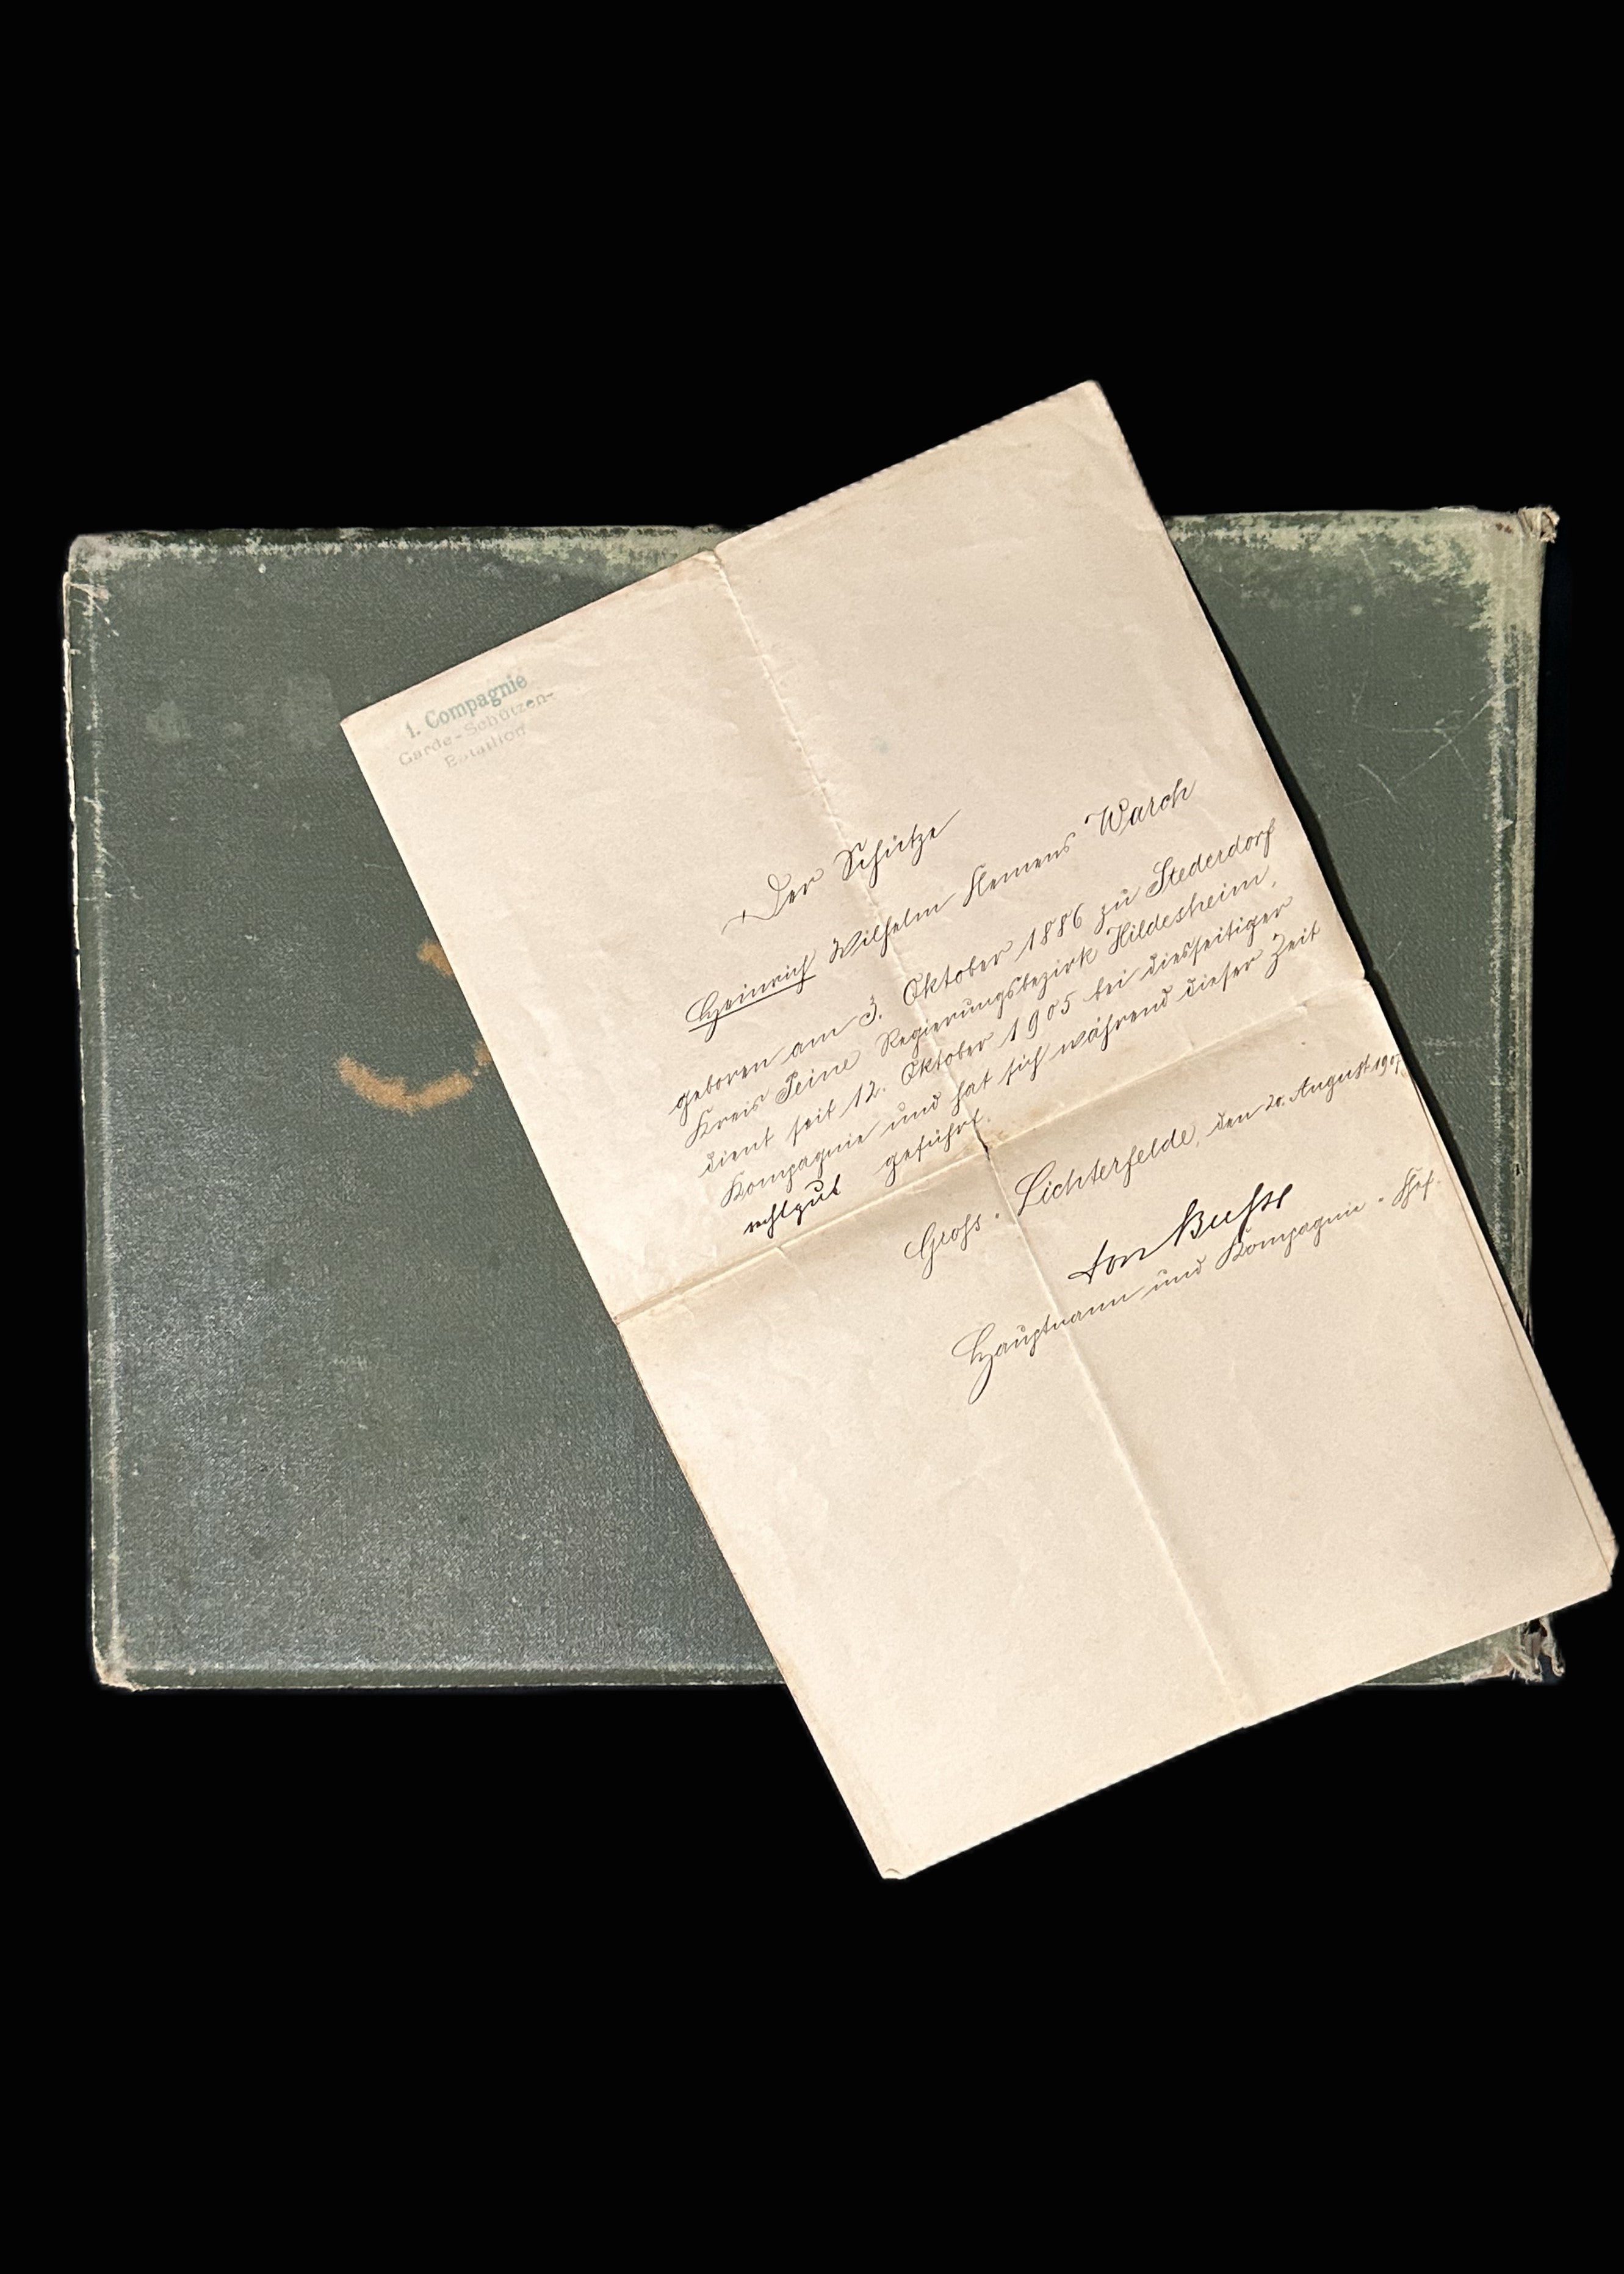 1. Compagnie
Garde-Schützen-
Bataillon
Der Schütze
Heinrich Wilhelm Klemens Warch
geboren am 3. Oktober 1886 zu Stederdorf
Kreis Peine Regierungsbezirk Hildesheim,
dient seit 12. Oktober 1905 bei diesseitiger
Kompagnie und hat sich während dieser Zeit
recht gut geführt.
Groß-Lichterfelde, den 20. August 1907
von
Hauptmann und Kompagnie-Chef.